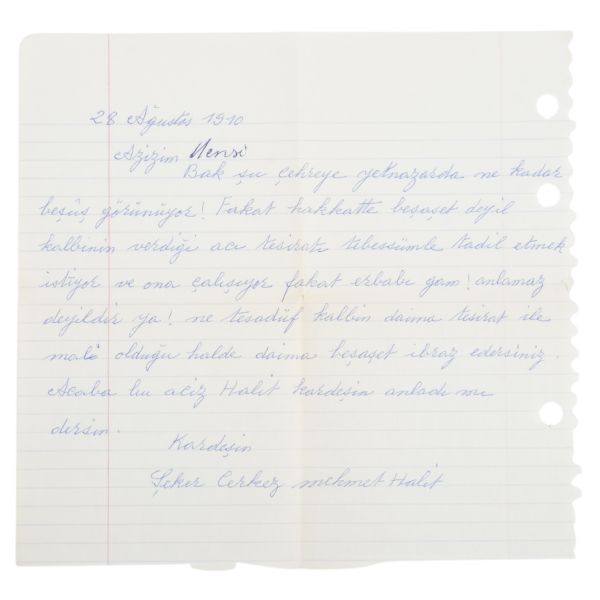 28 Ağustos 1910
Azizim
Bak şu çehreye yeknazarda ne kadar
beşüş görünüyor! Fakat hakkatte beşaşet deyil
kalbinin verdiği acı tesiratı tebessümle tadil etmek
istiyor ve ona çalışıyor fakat erbabı gam! anlamaz
deyildir ya! ne tesadüf kalbin daima tesirat ile
malî olduğu halde daima beşaşet ibraz edersiniz.
Acaba bu aciz Halit kardeşin anladı mı
dersin.
Kardeşin
Şeker Cerkez mehmet Halit